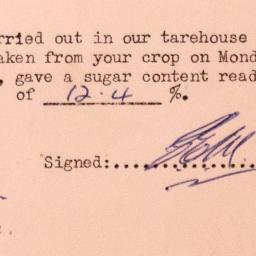 rried out in our tarehouse
aken from your crop on Mond
, gave a sugar content read
of 12.4 %.
Signed: